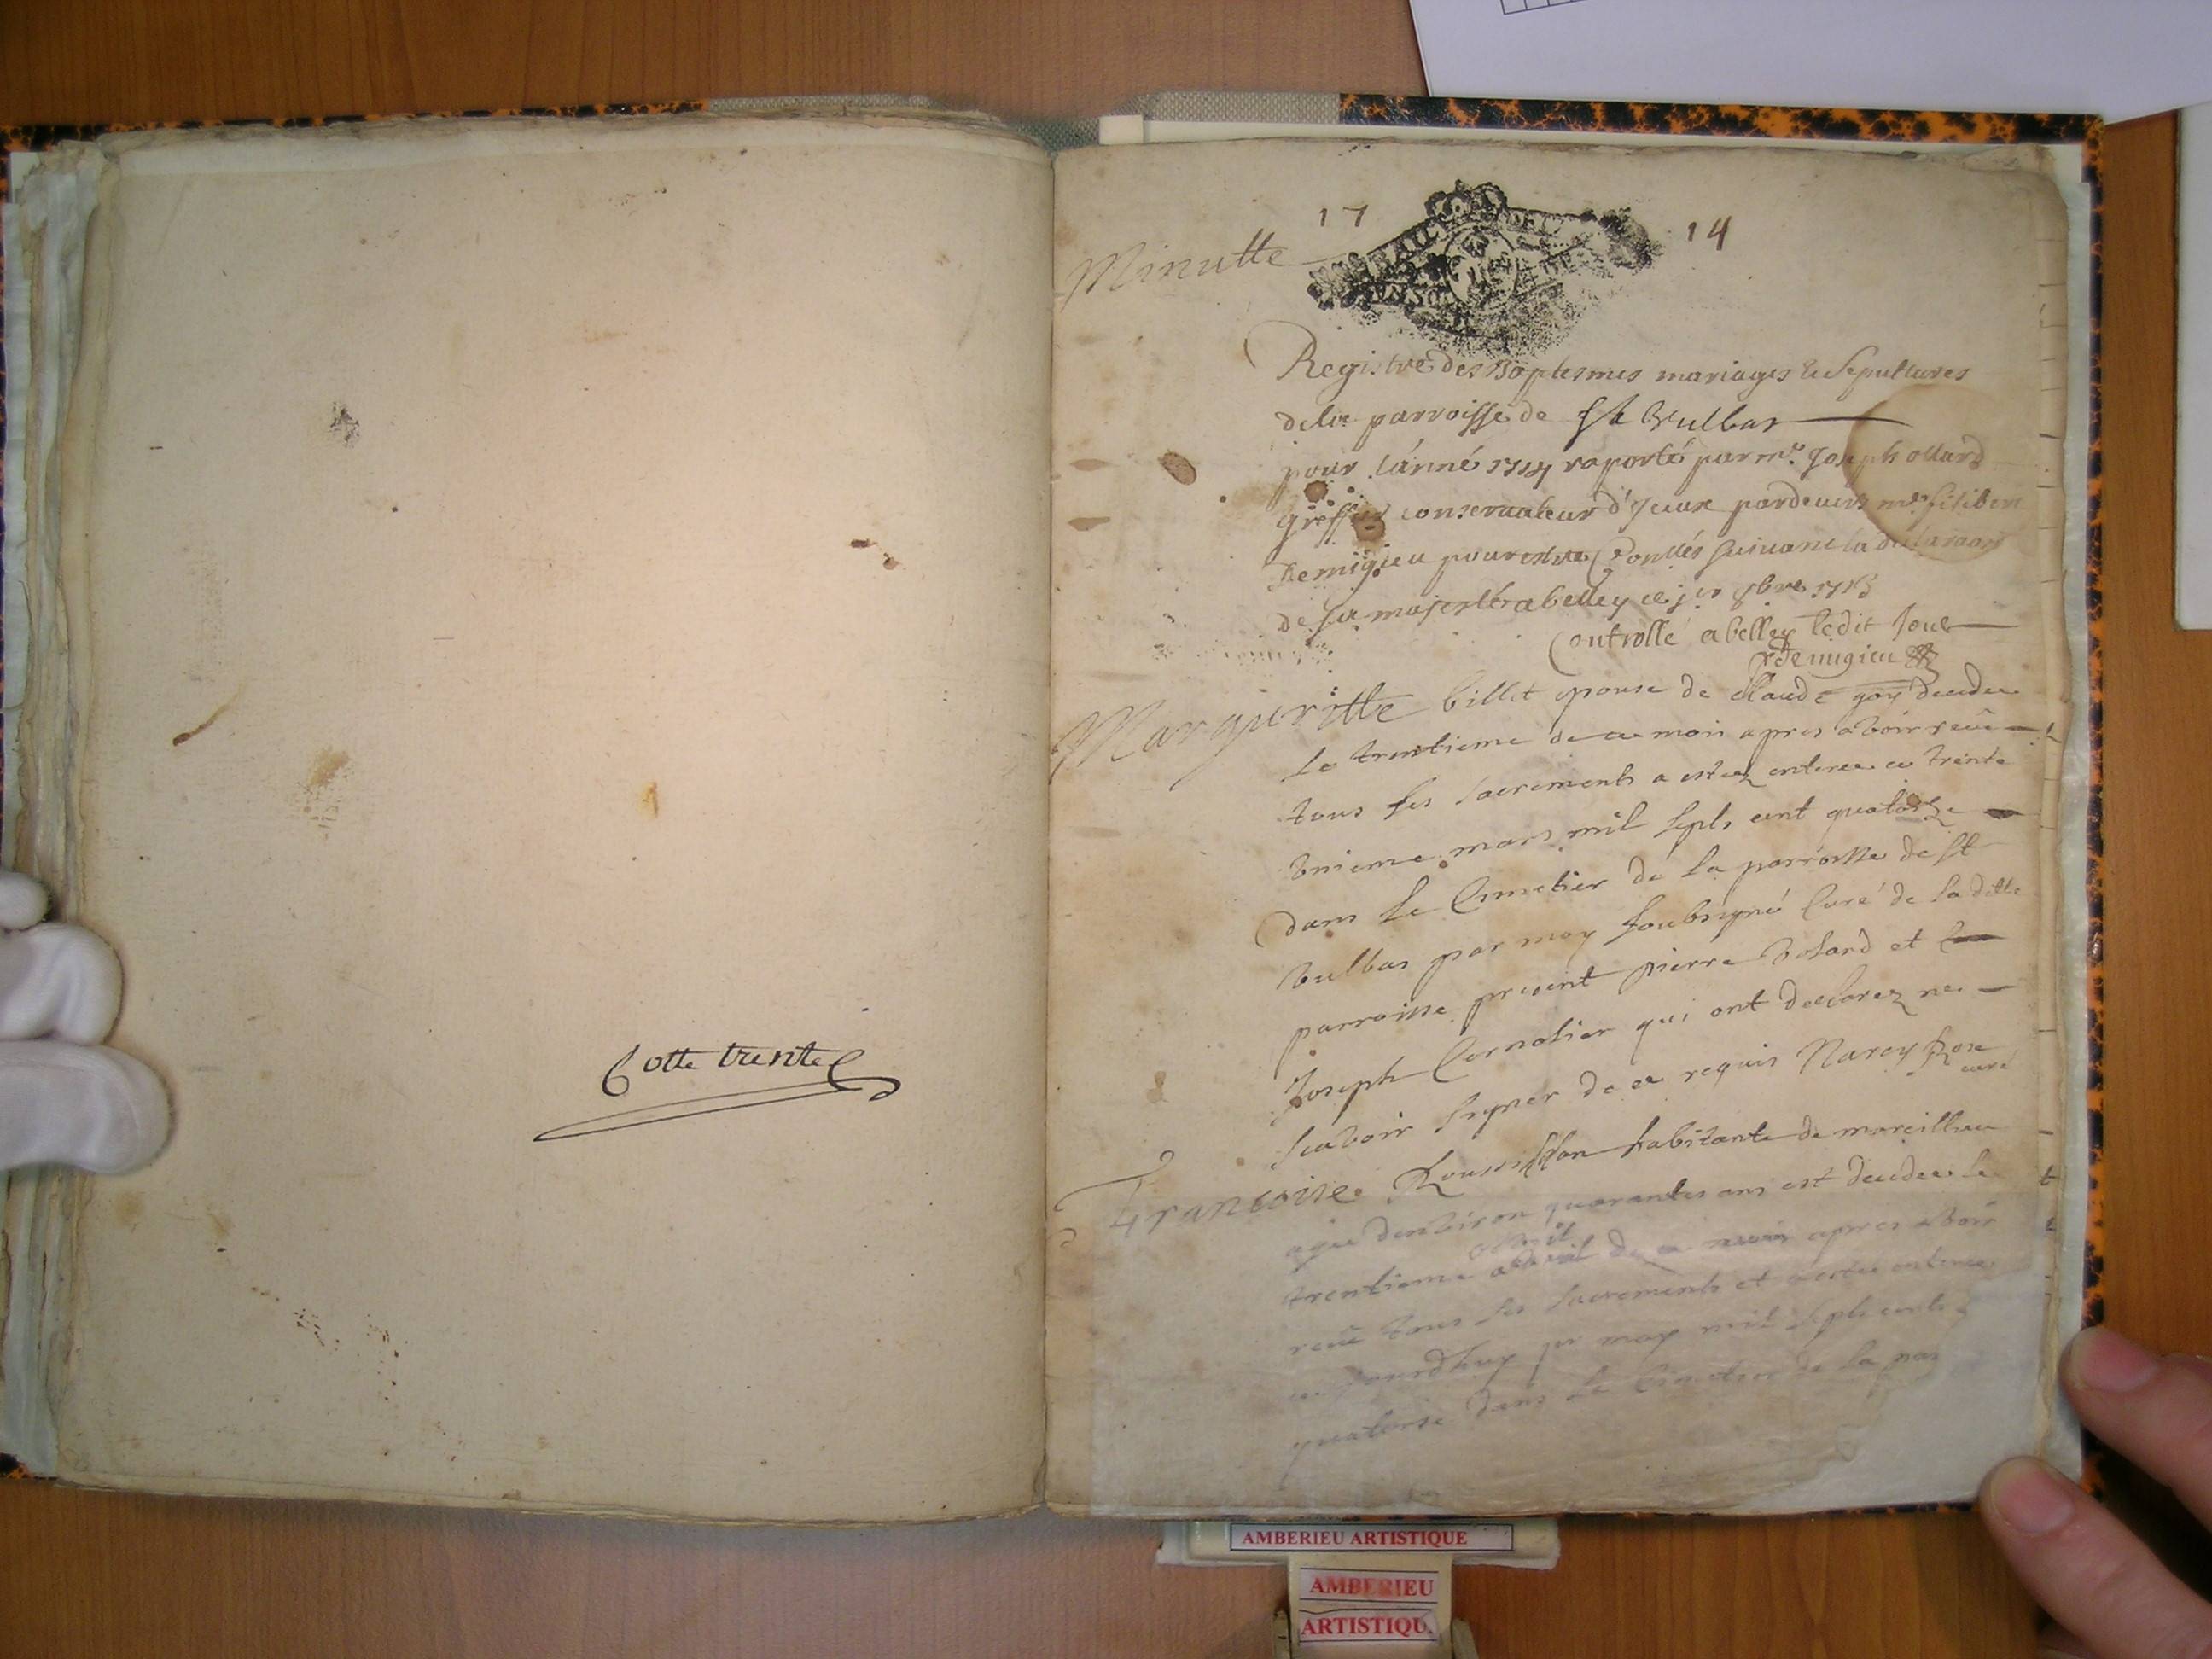 Cotte trente
17 14
Minutte
Registre des Baptesmes mariages & sepultures
de la parroisse de St Vulbas
pour l'anné 1714 raporté par me Joseph ollard
greffier conservateur d'Iceux pardevers
Demigieu pour estre Cottés suivant la
de sa majesté a belley ce jer 8bre 1713
Controllé a belley ledit Jour
Demigieu
Marguritte billet epouse de Claude goy decedee
le trentieme de ce mois apres avoir receu
tous les sacrements a estez enteree ce trente
vnieme mars mil septs cent quatorze
dans le Cimetier de la parroisse de St
vulbas par moy soubsigné Curé de la ditte
parroisse present pierre volard et
Joseph Cornolier qui ont declarez ne
scavoir signer de ce requis Narcy Rose
curé
Francoise Roussillon habitante de marcillieu
agee denviron quarantes ans est decedee le
avril
trentieme avril de ce mois apres avoir
receu tous les sacrements et a estee enteree
ce jourdhuy jer may mil septs cents
quatorse dans le Cimetier de la par
AMBERIEU ARTISTIQUE
AMBERIEU
ARTISTIQU